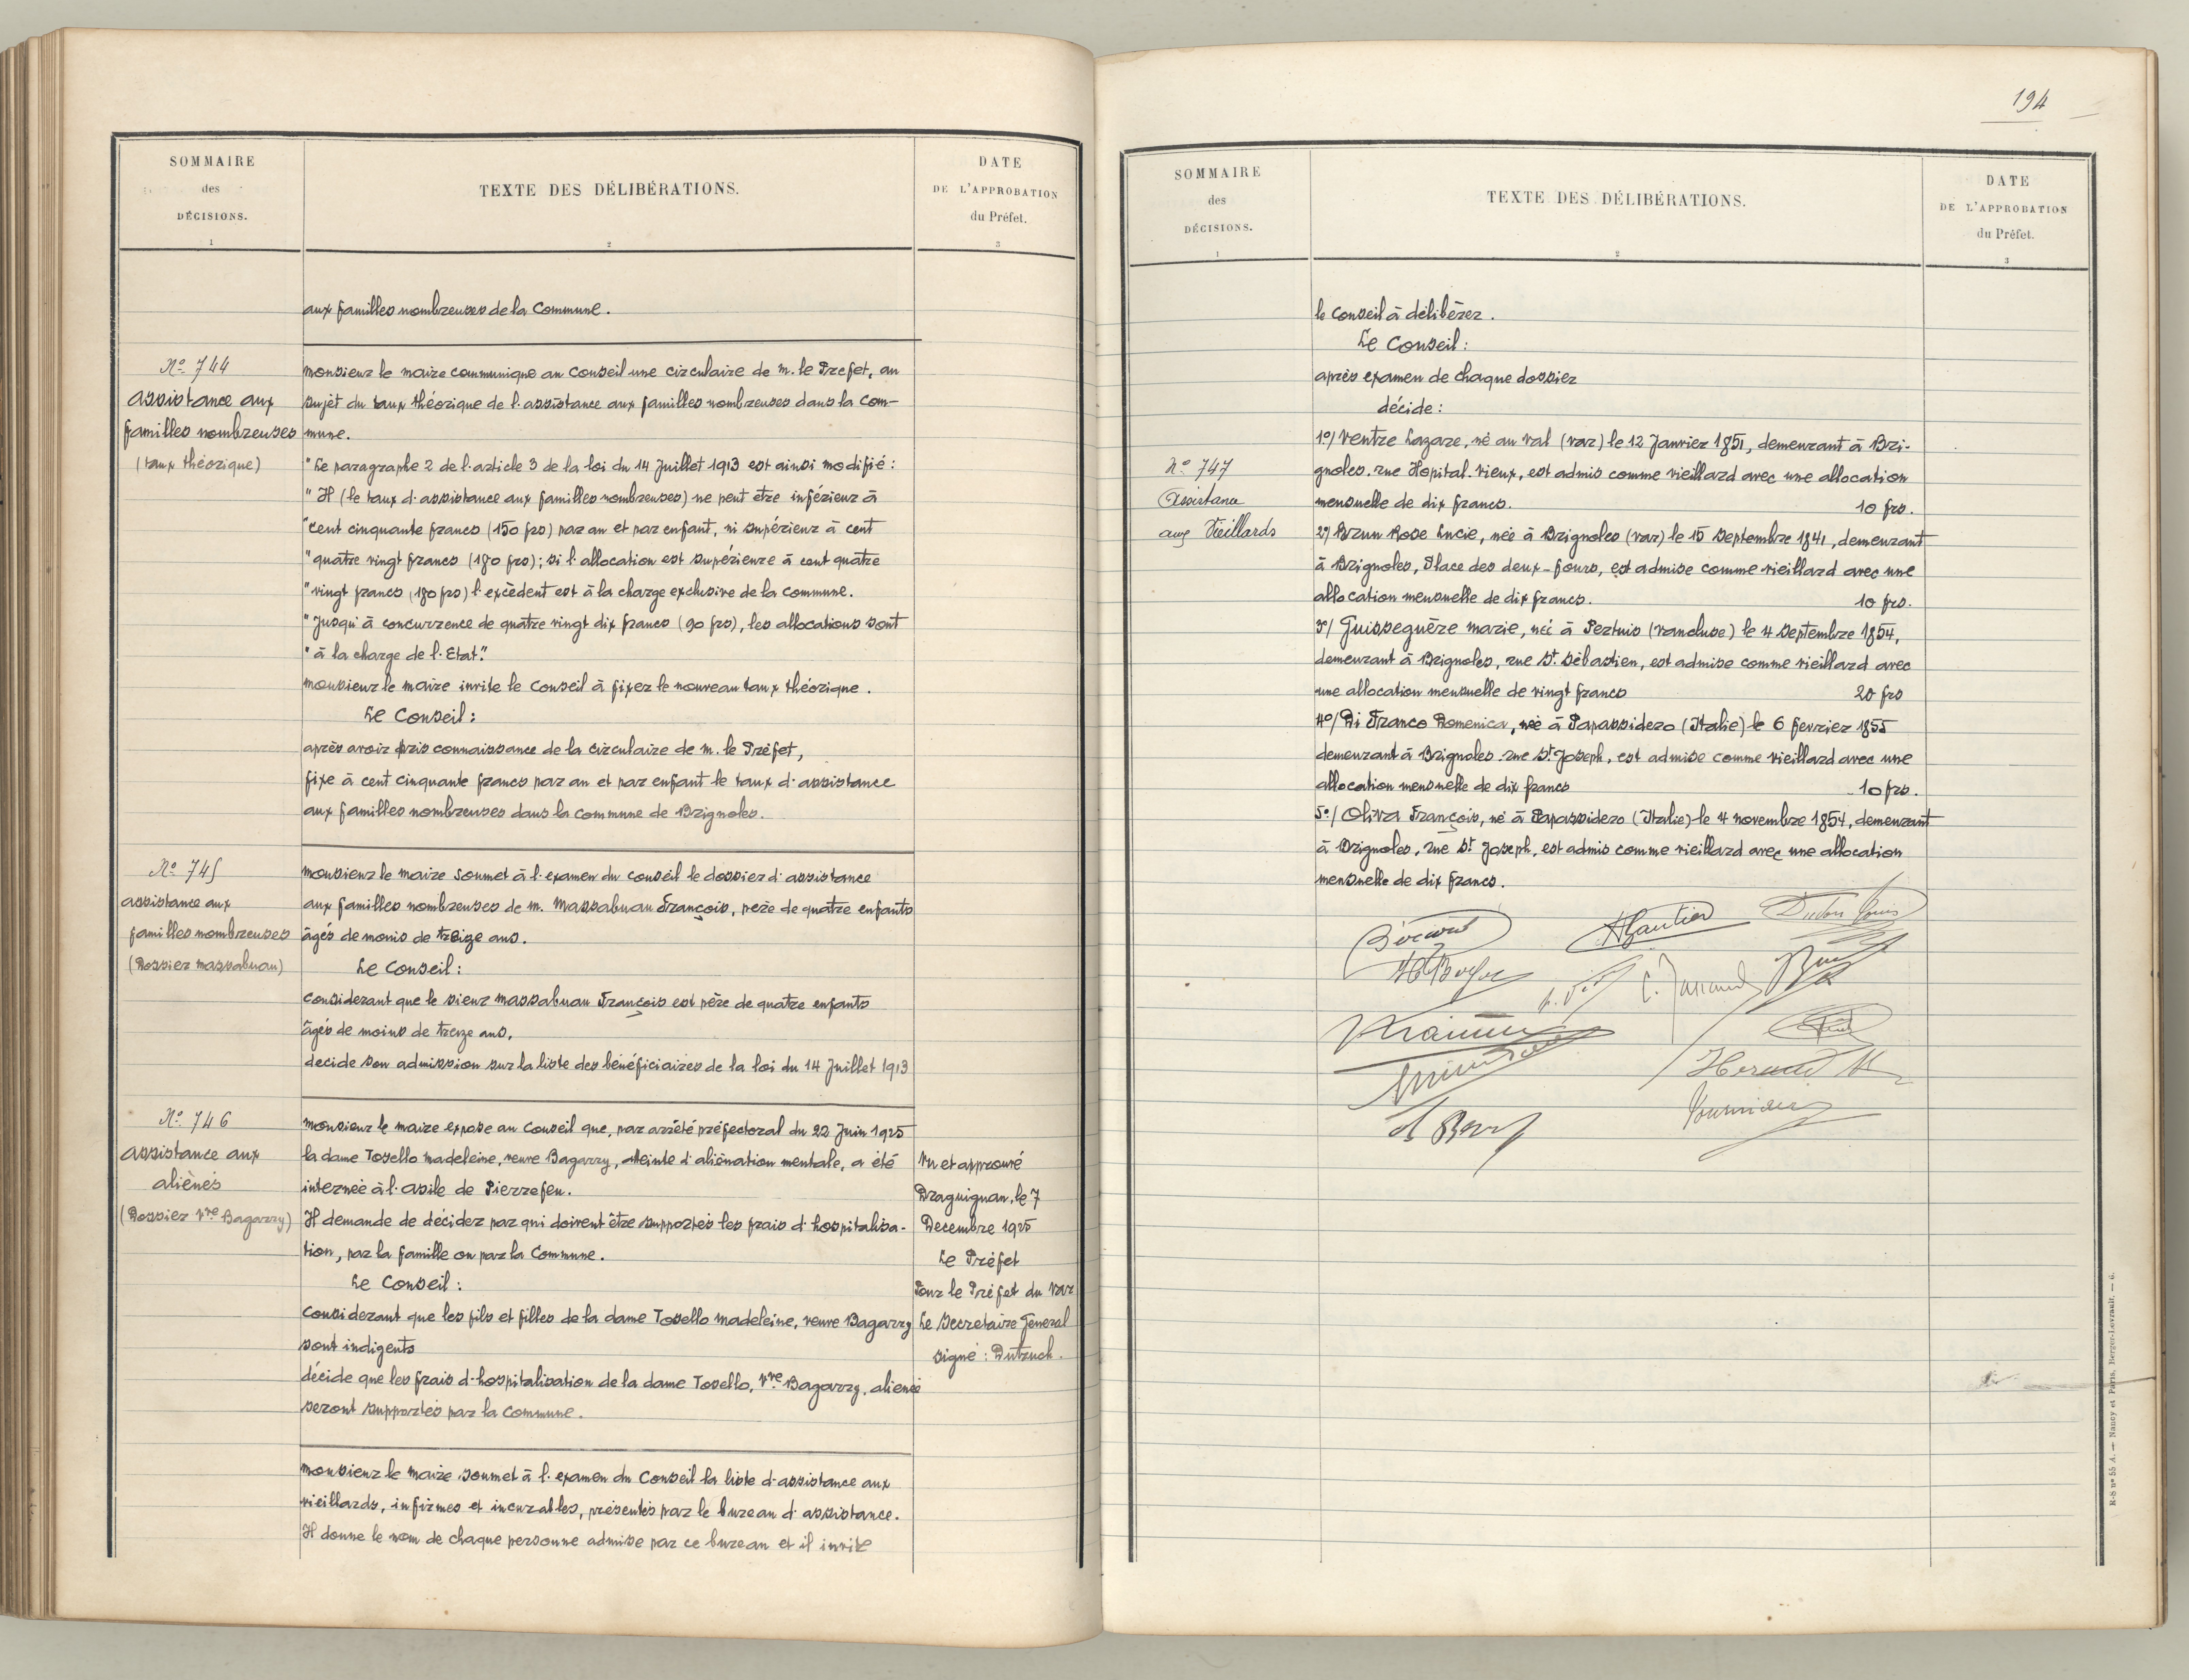 SOMMAIRE
des
DÉCISIONS.
1
TEXTE DES DÉLIBÉRATIONS.
2
DATE
DE L'APPROBATION
du Préfet.
3
aux familles nombreuses de la Commune.
No 744
assistance aux
familles nombreuses
(taux théorique)
Monsieur le Maire communique au Conseil une circulaire de M. le Prefet, au
sujet du taux théorique de l'assistance aux familles nombreuses dans la Com-
mune.
"Le paragraphe 2 de l'article 3 de la loi du 14 Juillet 1913 est ainsi modifié :
"Il (le taux d'assistance aux familles nombreuses) ne peut être inférieur à
"cent cinquante francs (150 frs) par an et par enfant, ni supérieur à cent
"quatre vingt francs (180 frs); si l'allocation est supérieure à cent quatre
"vingt francs (180 frs) l'excèdent est à la charge exclusive de la commune.
"Jusqu'à concurrence de quatre vingt dix francs (90 frs), les allocations sont
"à la charge de l'Etat."
Monsieur le Maire invite le Conseil à fixer le nouveau taux théorique.
Le Conseil :
après avoir pris connaissance de la circulaire de M. le Préfet,
fixe à cent cinquante francs par an et par enfant le taux d'assistance
aux familles nombreuses dans la commune de Brignoles.
No 745
assistance aux
familles nombreuses
(Dossier Massabuau)
Monsieur le Maire soumet à l'examen du conseil le dossier d'assistance
aux familles nombreuses de M. Massabuau François, père de quatre enfants
âgés de monis de treize ans.
Le Conseil :
Considerant que le sieur Massabuau François est père de quatre enfants
âgés de moins de treize ans,
decide son admission sur la liste des bénéficiaires de la loi du 14 Juillet 1913
No 746
assistance aux
aliénés
(Dossier Vve Bagarry)
Monsieur le Maire expose au Conseil que, par arrêté préfectoral du 22 Juin 1925
la dame Tosello Madeleine, veuve Bagarry, atteinte d'aliénation mentale, a été
internée à l'asile de Pierrefeu.
Il demande de décider par qui doivent être supportés les frais d'hospitalisa-
tion, par la famille ou par la Commune.
Le Conseil :
Considerant que les fils et filles de la dame Tosello Madeleine, veuve Bagarry
sont indigents
décide que les frais d'hospitalisation de la dame Tosello, Vve Bagarry, alienée
seront supportés par la Commune.
Vu et approuvé
Draguignan, le 7
Decembre 1925
Le Préfet
Pour le Préfet du Var
Le Secretaire General
signé : Dutruch.
Monsieur le Maire soumet à l'examen du Conseil la liste d'assistance aux
vieillards, infirmes et incurables, présentés par le bureau d'assistance.
Il donne le nom de chaque personne admise par ce bureau et il invite
194
SOMMAIRE
des
DÉCISIONS.
1
TEXTE DES DÉLIBÉRATIONS.
2
DATE
DE L'APPROBATION
du Préfet.
3
le Conseil à délibérer.
Le Conseil :
après examen de chaque dossier
décide :
No 747
Assistance
aux Vieillards
1o/ Ventre Lazare, né au Val (Var) le 12 Janvier 1851, demeurant à Bri-
gnoles. rue Hopital-vieux, est admis comme vieillard avec une allocation
mensuelle de dix francs. 10 frs.
2o/ Brun Rose Lucie, née à Brignoles (Var) le 15 Septembre 1841, demeurant
à Brignoles, Place des deux-fours, est admise comme vieillard avec une
allocation mensuelle de dix francs. 10 frs.
3o/ Guisseguère Marie, née à Pertuis (Vaucluse) le 4 Septembre 1854,
demeurant à Brignoles, rue St Sébastien, est admise comme vieillard avec
une allocation mensuelle de vingt francs 20 frs
4o/ Di Franco Domenica, née à Papassidero (Italie) le 6 fevrier 1855
demeurant à Brignoles. rue St Joseph, est admise comme vieillard avec une
allocation mensuelle de dix francs 10 frs.
5o/ Oliva François, né à Papassidero (Italie) le 4 novembre 1854, demeurant
à Brignoles, rue St Joseph, est admis comme vieillard avec une allocation
mensuelle de dix francs.
Gautier
Fournier
R-S no 55 A. — Nancy et Paris, Berger-Levrault. — 6.